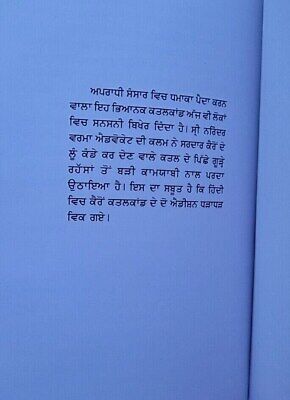 ਅਪਰਾਧੀ ਸੰਸਾਰ ਵਿਚ ਧਮਾਕਾ ਪੈਦਾ ਕਰਨ
ਵਾਲਾ ਇਹ ਭਿਆਨਕ ਕਤਲਕਾਂਡ ਅੱਜ ਵੀ ਲੋਕਾਂ
ਵਿਚ ਸਨਸਨੀ ਬਿਖੇਰ ਦਿੰਦਾ ਹੈ। ਸ੍ਰੀ ਨਰਿੰਦਰ
ਵਰਮਾ ਐਡਵੋਕੇਟ ਦੀ ਕਲਮ ਨੇ ਸਰਦਾਰ ਕੈਰੋਂ ਦੇ
ਲੂੰ ਕੰਡੇ ਕਰ ਦੇਣ ਵਾਲੇ ਕਤਲ ਦੇ ਪਿੱਛੇ ਗੁੜ੍ਹੇ
ਰਹੱਸਾਂ ਤੋਂ ਬੜੀ ਕਾਮਯਾਬੀ ਨਾਲ ਪਰਦਾ
ਉਠਾਇਆ ਹੈ। ਇਸ ਦਾ ਸਬੂਤ ਹੈ ਕਿ ਹਿੰਦੀ
ਵਿਚ ਕੈਰੋਂ ਕਤਲਕਾਂਡ ਦੇ ਦੋ ਐਡੀਸ਼ਨ ਧੜਾਧੜ
ਵਿਕ ਗਏ।